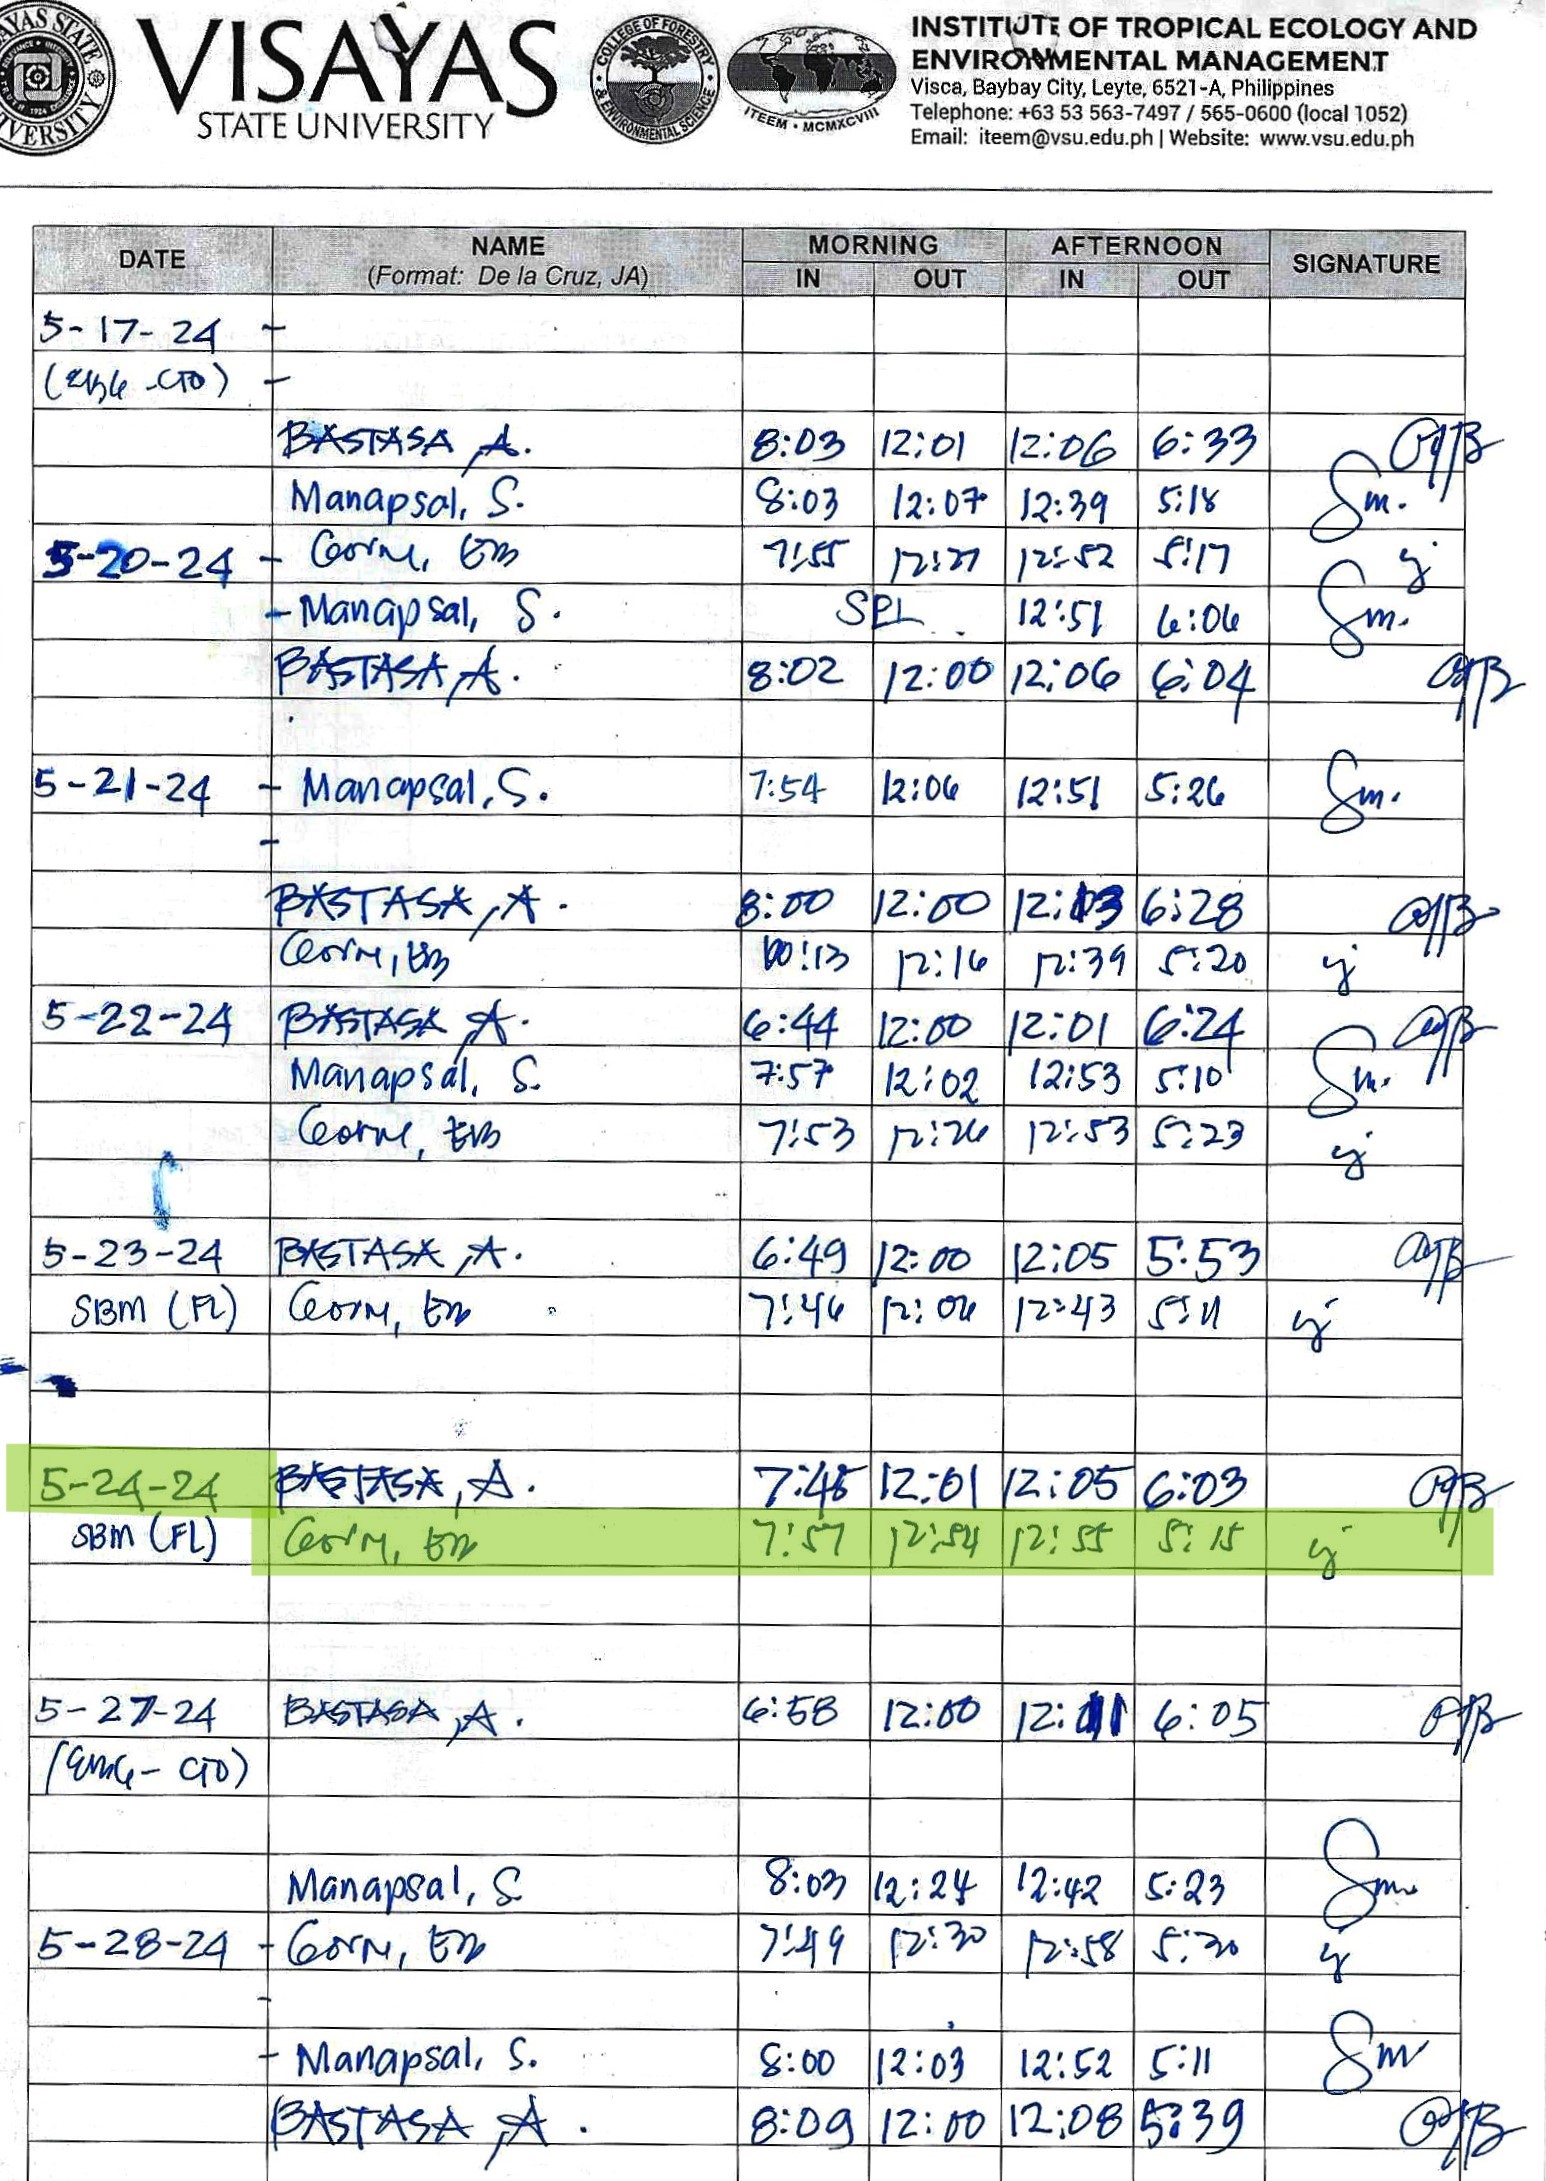 VISAYAS
STATE UNIVERSITY
COLLEGE OF FORESTRY & ENVIRONMENTAL SCIENCE
ITEEM • MCMXCVIII
INSTITUTE OF TROPICAL ECOLOGY AND
ENVIRONMENTAL MANAGEMENT
Visca, Baybay City, Leyte, 6521-A, Philippines
Telephone: +63 53 563-7497 / 565-0600 (local 1052)
Email: iteem@vsu.edu.ph | Website: www.vsu.edu.ph
DATE NAME MORNING AFTERNOON SIGNATURE
(Format: De la Cruz, JA) IN OUT IN OUT
5-17-24 -
-CTO) -
BASTASA, A. 8:03 12:01 12:06 6:33
Manapsal, S. 8:03 12:07 12:39 5:18 Sm.
5-20-24 - 7:55 12:27 12:52 5:17
- Manapsal, S. SPL 12:51 6:06 Sm.
BASTASA, A. 8:02 12:00 12:06 6:04
5-21-24 - Manapsal, S. 7:54 12:06 12:51 5:26 Sm.
-
BASTASA, A. 8:00 12:00 12:13 6:28
10:13 12:16 12:39 5:20
5-22-24 BASTASA, A. 6:44 12:00 12:01 6:24
Manapsal, S. 7:57 12:02 12:53 5:10 Sm.
7:53 12:26 12:53 5:23
5-23-24 BASTASA, A. 6:49 12:00 12:05 5:53
SBM (FL) 7:46 12:06 12:43 5:11
5-24-24 BASTASA, A. 7:45 12:01 12:05 6:03
SBM (FL) 7:57 12:54 12:55 5:15
5-27-24 BASTASA, A. 6:58 12:00 12:11 6:05
- CTO)
Manapsal, S. 8:03 12:24 12:42 5:23 Sm.
5-28-24 - 7:49 12:30 12:58 5:30
-
- Manapsal, S. 8:00 12:03 12:52 5:11 Sm
BASTASA, A. 8:09 12:00 12:08 5:39